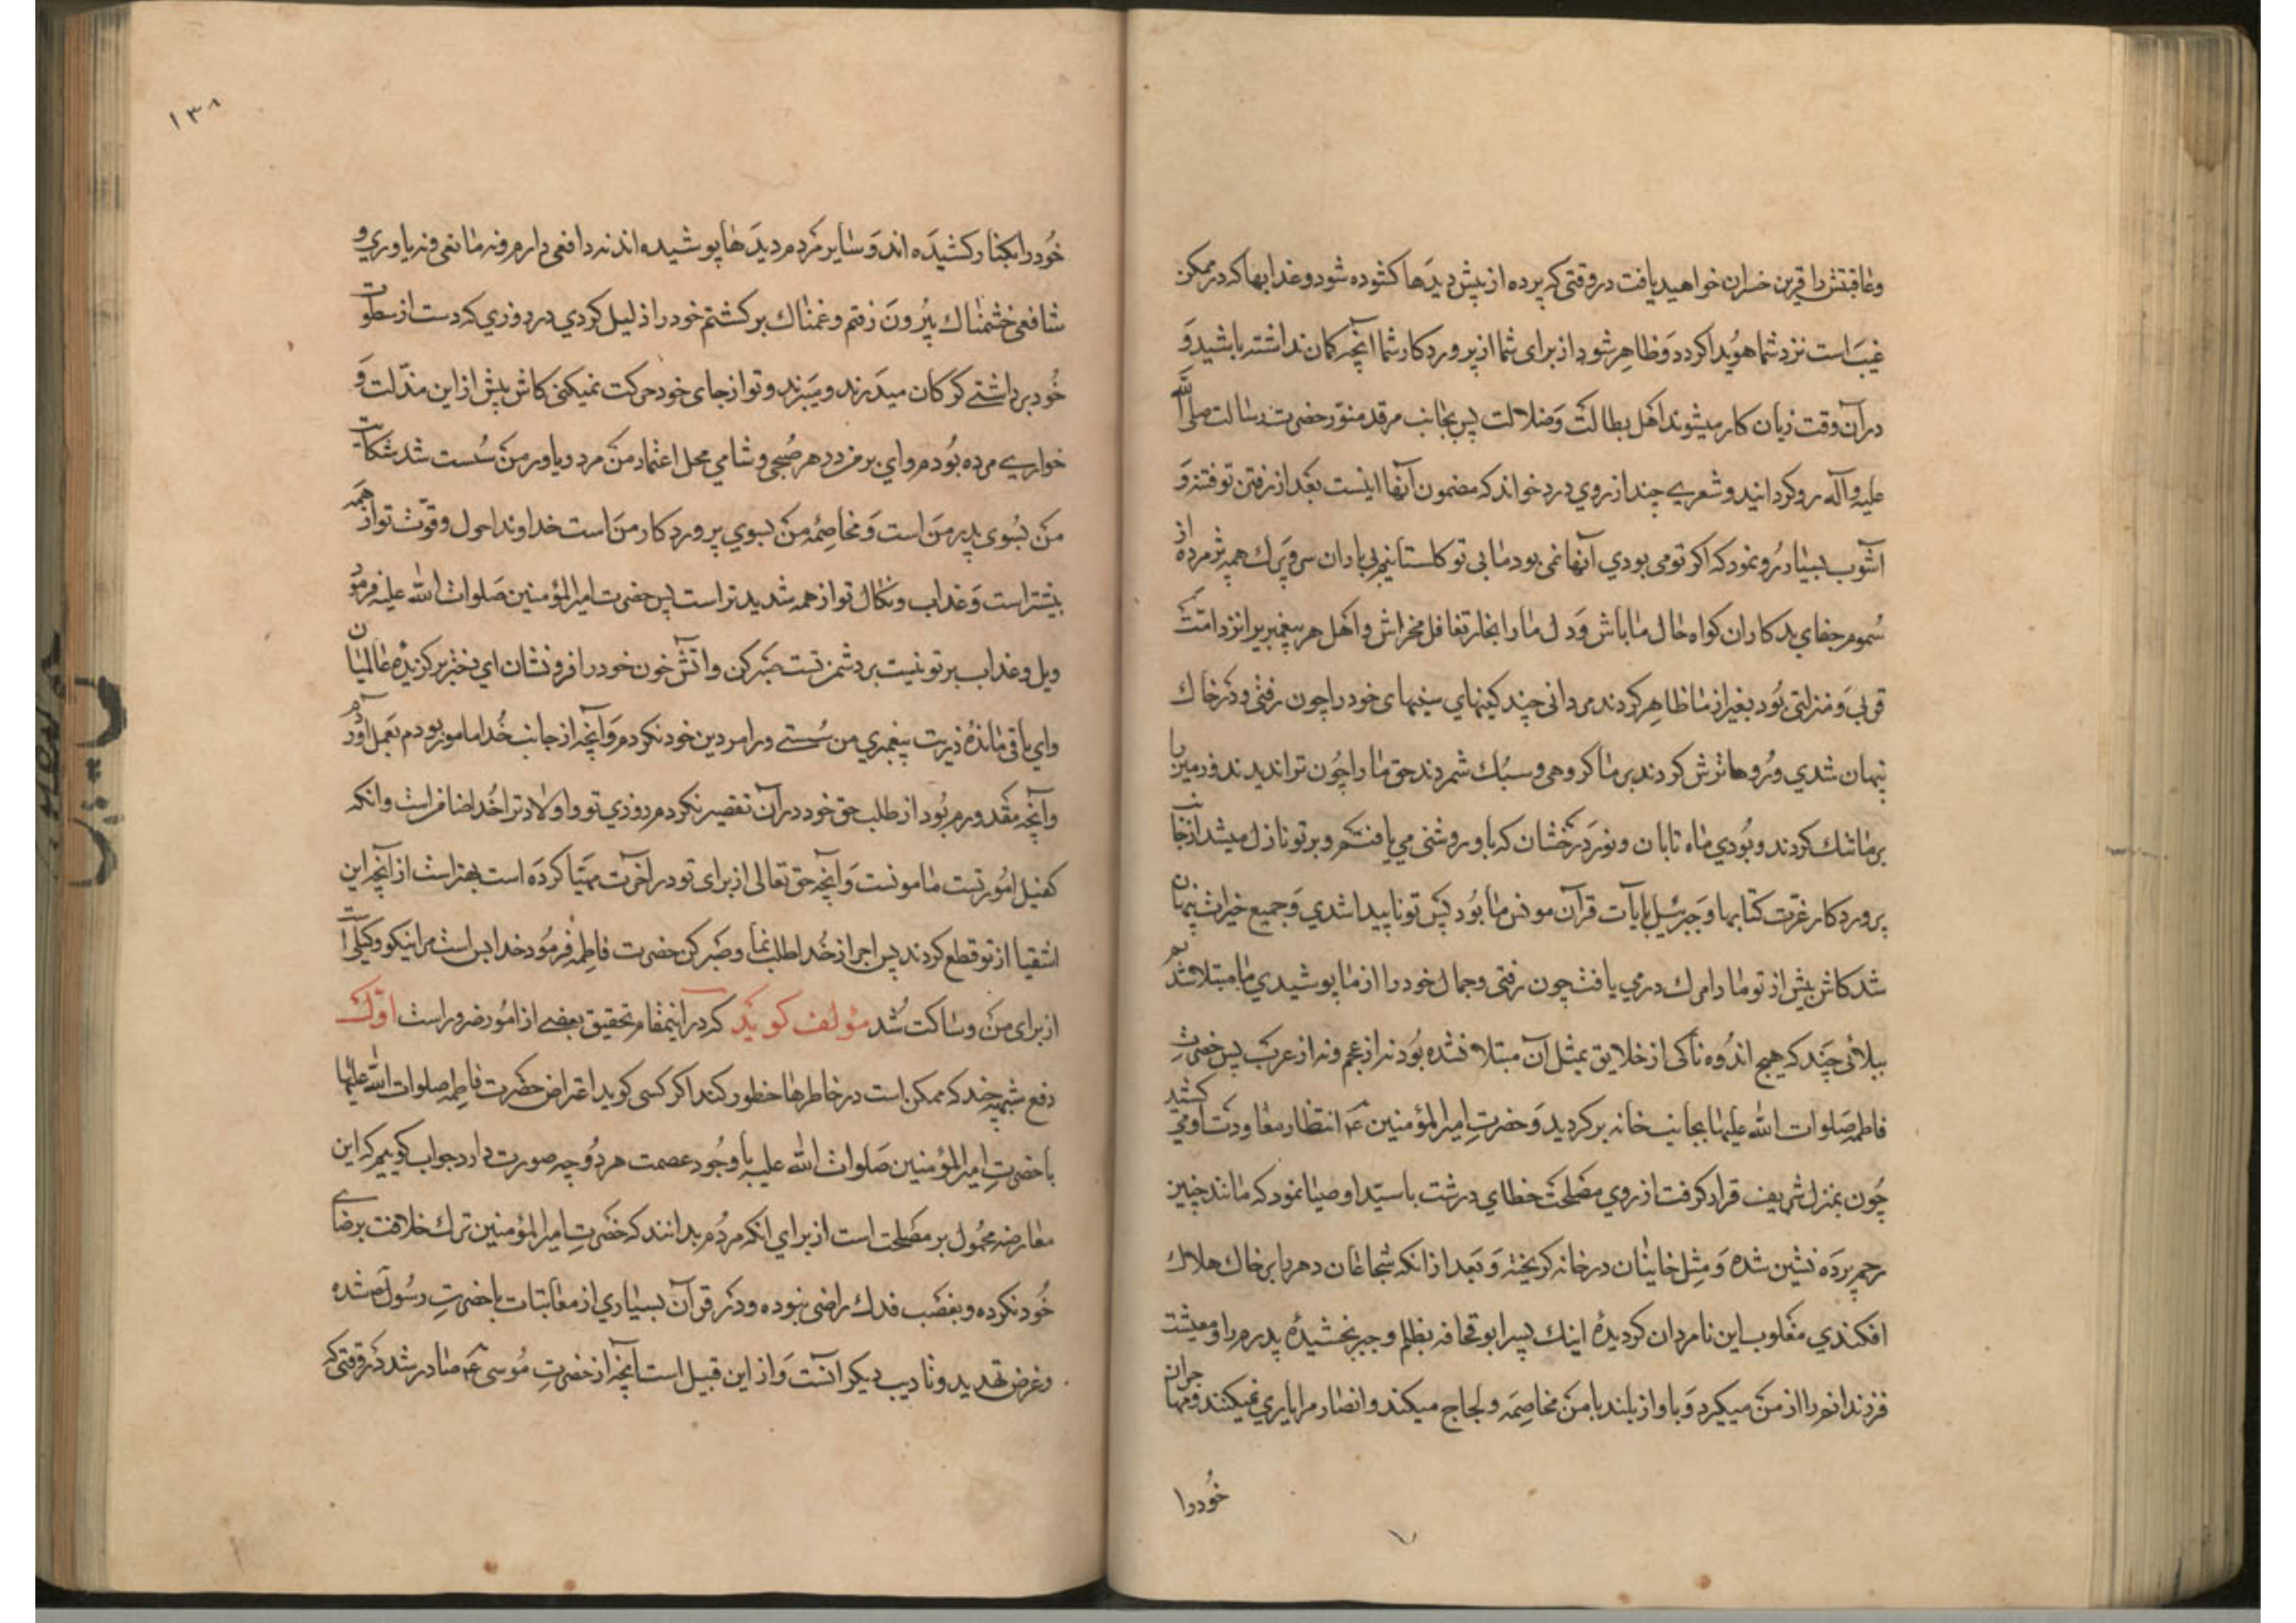 وعاقبتش را قرین خسران خواهید یافت در وقتی که پرده از پیش دیدها کشوده شود وعذابها که در ممکن
غیب است نزد شما هویدا کردد وظاهر شود از برای شما از پروردکار شما آنچه کمان نداشته باشید و
در آن وقت زیان کار میشوند اهل بطالت وضلالت پس بجانب مرقد منور حضرت رسالت صلی الله
علیه وآله رو کردانید وشعری چند از روی درد خواند که مضمون آنها اینست بعد از رفتن تو فتنه و
آشوب بسیار رو نمود که اکر تو می بودی آنها نمی بود ما بی تو کلستانیم بی باران سر وبرک همه پژمرده از
سموم جفای بدکاران کواه حال ما باش ودل ما را بخار تغافل مخراش واهل هر پیغمبریرا نزد امتش
قربی ومنزلتی بود بغیر از ما ظاهر کردند مردانی چند کینهای سینهای خود را چون رفتی ودر خاک
پنهان شدی وروها ترش کردند بر ما کروهی وسبک شمردند حق ما را چون ترا ندیدند وزمین را
بر ما تنک کردند وبودی ماه تابان ونور درخشان که باو روشنی می یافتیم وبر تو نازل میشد از جانب
پروردکار عزت کتابها وجبرئیل بآیات قرآن مونس ما بود پس تو ناپیدا شدی وجمیع خیرات پنهان
شد کاش پیش از تو ما را مرک در می یافت چون رفتی وجمال خود را از ما پوشیدی ما مبتلا شدیم
ببلائی چند که هیچ اندوه ناکی از خلایق بمثل آن مبتلا نشده بود نه از عجم ونه از عرب پس حضرت
فاطمه صلوات الله علیها بجانب خانه برکردید وحضرت امیر المؤمنین ع انتظار معاودت او می کشید
چون بمنزل شریف قرار کرفت از روی مصلحت خطابهای درشت با سید اوصیا نمود که مانند جنین
رحم پرده نشین شده ومثل خاینان در خانه کریخته وبعد از انکه شجاعان دهر را بر خاک هلاک
افکندی مغلوب این نامردان کردیدهٔ اینک پسر ابو قحافه بظلم وجبر بخشیدهٔ پدرم را ومعیشت
فرزندانم را از من میکیرد وباواز بلند با من مخاصمه ولجاج میکند وانصار مرا یاری نمیکنند ومهاجران
خودرا
۱۳۸
خودرا بکنار کشیده اند وسایر مردم دیدها پوشیده اند نه دافعی دارم ونه مانعی ونه یاوری و
شافعی خشمناک بیرون رفتم وغمناک برکشتم خود را ذلیل کردی در روزی که دست از سطوت
خود برداشتی کرکان میدرند ومیبرند وتو از جای خود حرکت نمیکنی کاش پیش از این مذلت و
خواری مرده بودم وای بر من در هر صبحی وشامی محل اعتماد من مرد ویاور من سست شد شکایت
من بسوی پدر من است ومخاصمه من بسوی پروردکار من است خداوندا حول وقوت تو از همه
بیشتر است وعذاب ونکال تو از همه شدیدتر است پس حضرت امیر المؤمنین صلوات الله علیه فرمود
ویل وعذاب بر تو نیست بر دشمن تست صبر کن واتش خون خود را فرو نشان ای دختر برکزیدهٔ عالمیان
وای باقی ماندهٔ ذریت پیغمبری من سستی در امر دین خود نکردم وآنچه از جانب خدا مامور بودم بعمل آوردم
وآنچه مقدورم بود از طلب حق خود در آن تقصیر نکردم روزی تو واولاد ترا خدا ضامن است وانکه
کفیل امور تست مامونست وآنچه حق تعالی از برای تو در آخرت مهیا کرده است بهتر است از آنچه این
اشقیا از تو قطع کردند پس اجر از خدا طلب نما وصبر کن حضرت فاطمه فرمود خدا بس است مرا نیکو وکیلی است
از برای من وساکت شد مؤلف کوید که در اینمقام تحقیق بعضی از امور ضرور است اول
دفع شبهه چند که ممکن است در خاطرها خطور کند اکر کسی کوید اعتراض حضرت فاطمه صلوات الله علیها
با حضرت امیر المؤمنین صلوات الله علیه با وجود عصمت هر دو چه صورت دارد جواب کوییم که این
معارضه محمول بر مصلحت است از برای انکه مردم بدانند که حضرت امیر المؤمنین ترک خلافت برضای
خود نکرده وبغصب فدک راضی نبوده ودر قرآن بسیاری از معاتبات با حضرت رسول ص شده
وغرض تهدید وتادیب دیکرانست واز این قبیل است آنچه از حضرت موسی ع صادر شد در وقتی که